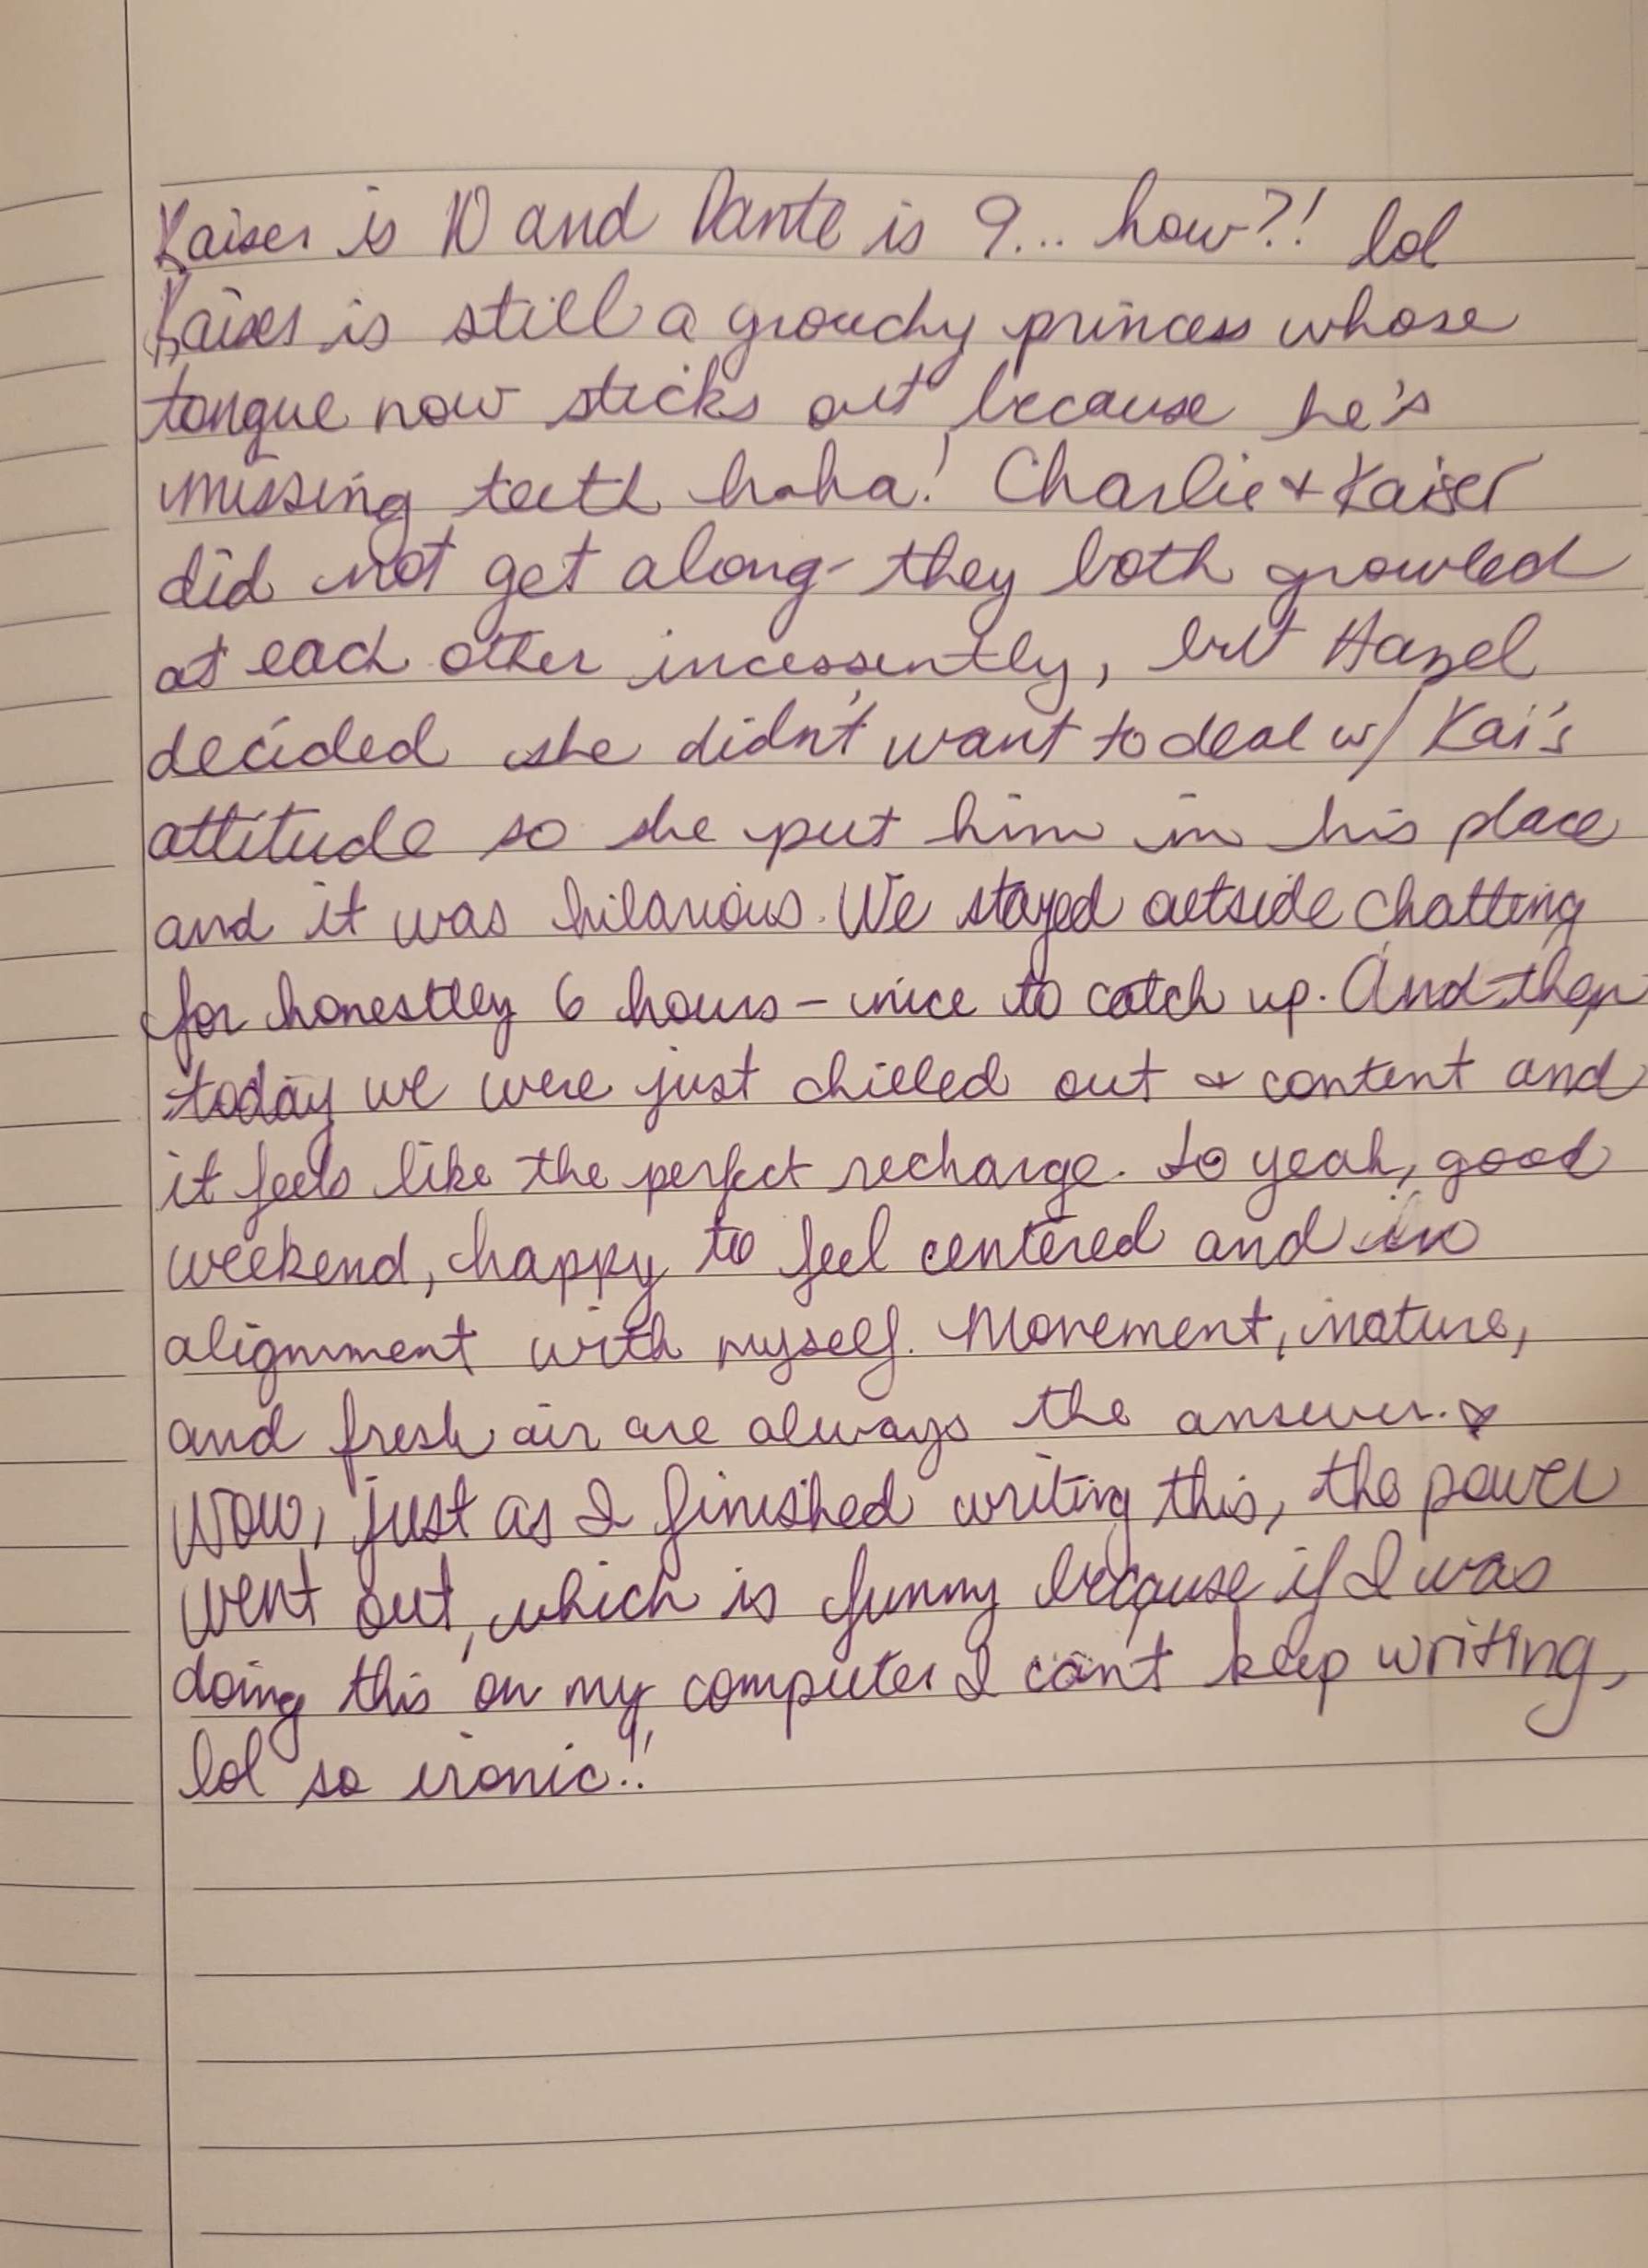 Kaiser is 10 and Dante is 9... how?! lol
Kaiser is still a grouchy princess whose
tongue now sticks out because he's
missing teeth haha! Charlie + Kaiser
did not get along - they both growled
at each other incessently, but Hazel
decided she didn't want to deal w/ Kai's
attitude so she put him in his place
and it was hilarious. We stayed outside chatting
for honestley 6 hours - nice to catch up. And then
today we were just chilled out & content and
it feels like the perfect recharge. So yeah, good
weekend, happy to feel centered and in
alignment with myself. Movement, nature,
and fresh air are always the answer. ♡
Wow, just as I finished writing this, the power
went out, which is funny because if I was
doing this on my computer I can't keep writing,
lol so ironic!!